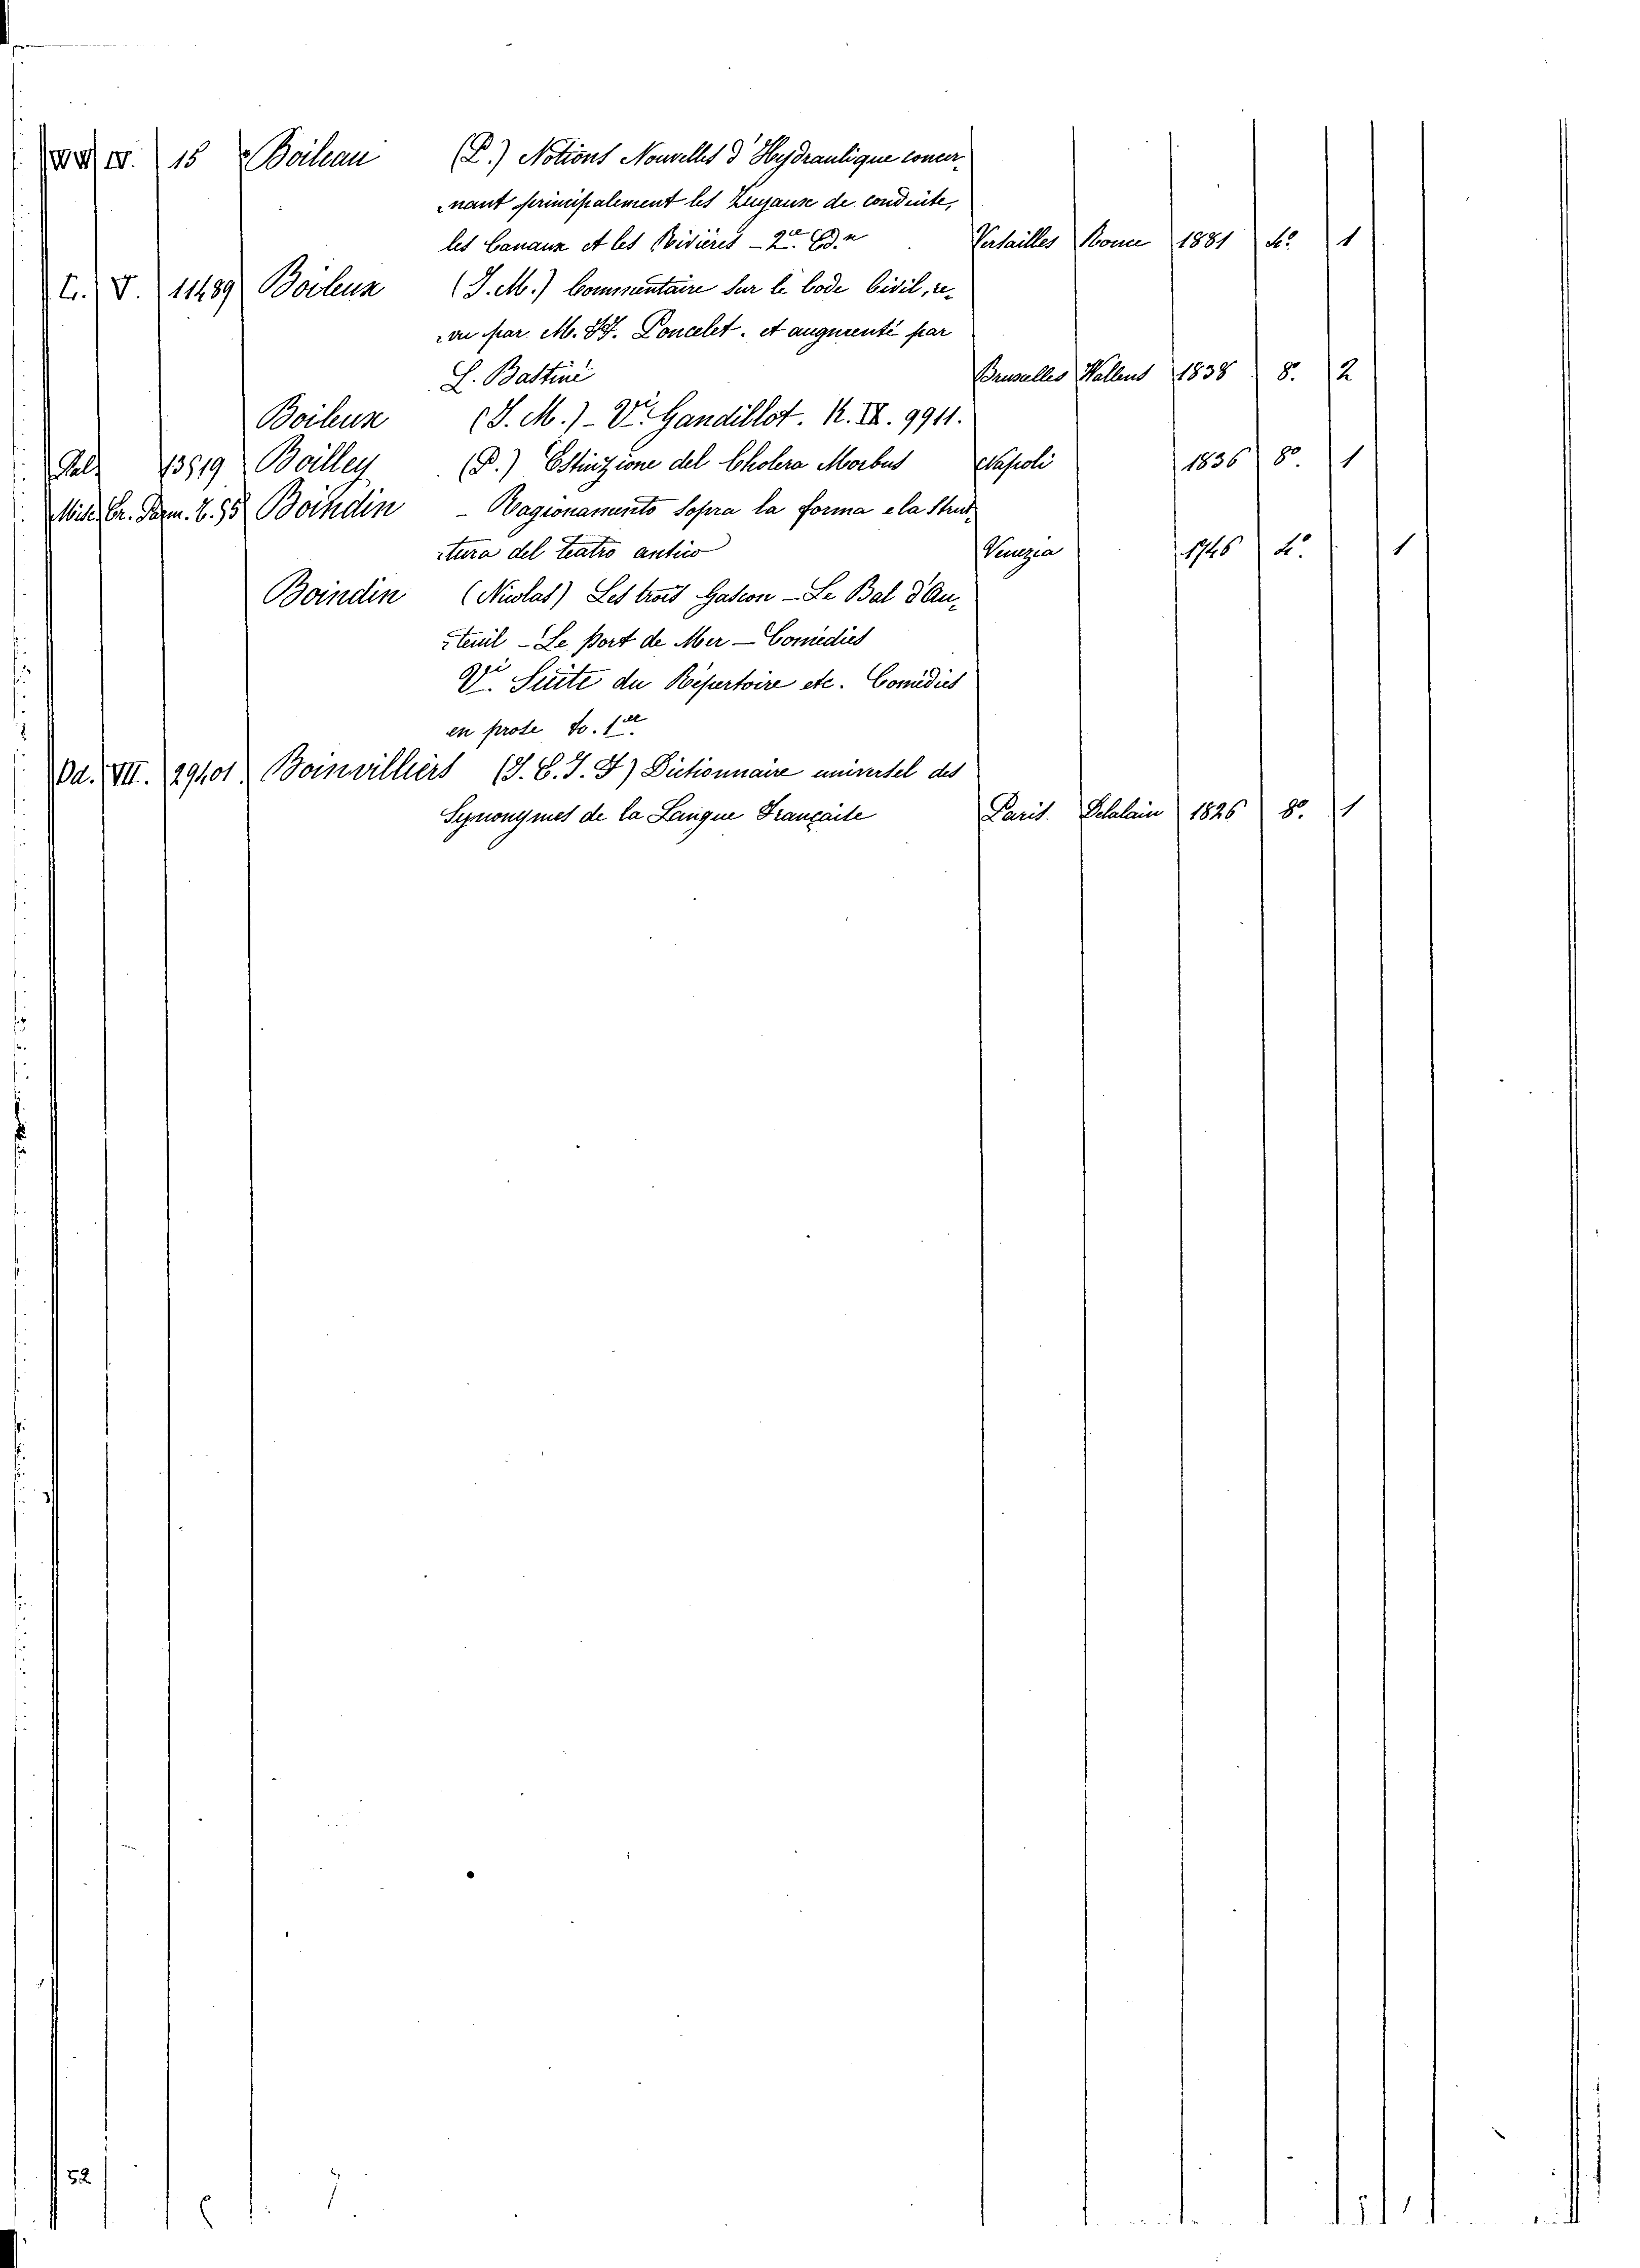 IV. 15 Boileau (P.) Notions Nouvelles d'Hydraulique concer-
-nant principalement les Tuyaux de conduite,
les Canaux et les Rivières - 2e Ed.n Versailles Ronce 1881 4º 1
L. V. 11489 Boileux (J. M.) Commentaire sur le Code Civil, re-
-vu par M. FF. Poncelet. et augmenté par
L. Bastiné Bruxelles Wallens 1838 8. 2
Boileux (J. M.) - Vi Gandillot. K. IX. 9911.
Pal. 13519 Boilley (P.) Estinzione del Cholera Morbus Napoli 1836 8º 1
Misc. Gr. Parm. 6. 95 Boindin - Ragionamento sopra la forma e la strut-
-tura del teatro antico Venezia 1746 4º. 1
Boindin (Nicolas) Les trois Gascon - Le Bal d'Au-
-teuil - Le port de Mer - Comédies
Vi. Suite du Répertoire etc. Comédies
en prose To. 1er
Od. VII. 29401 Boinvilliers (J. E. J. F) Dictionnaire universel des
Synonymes de la Langue Française Paris. Delalain 1826 8º. 1
52